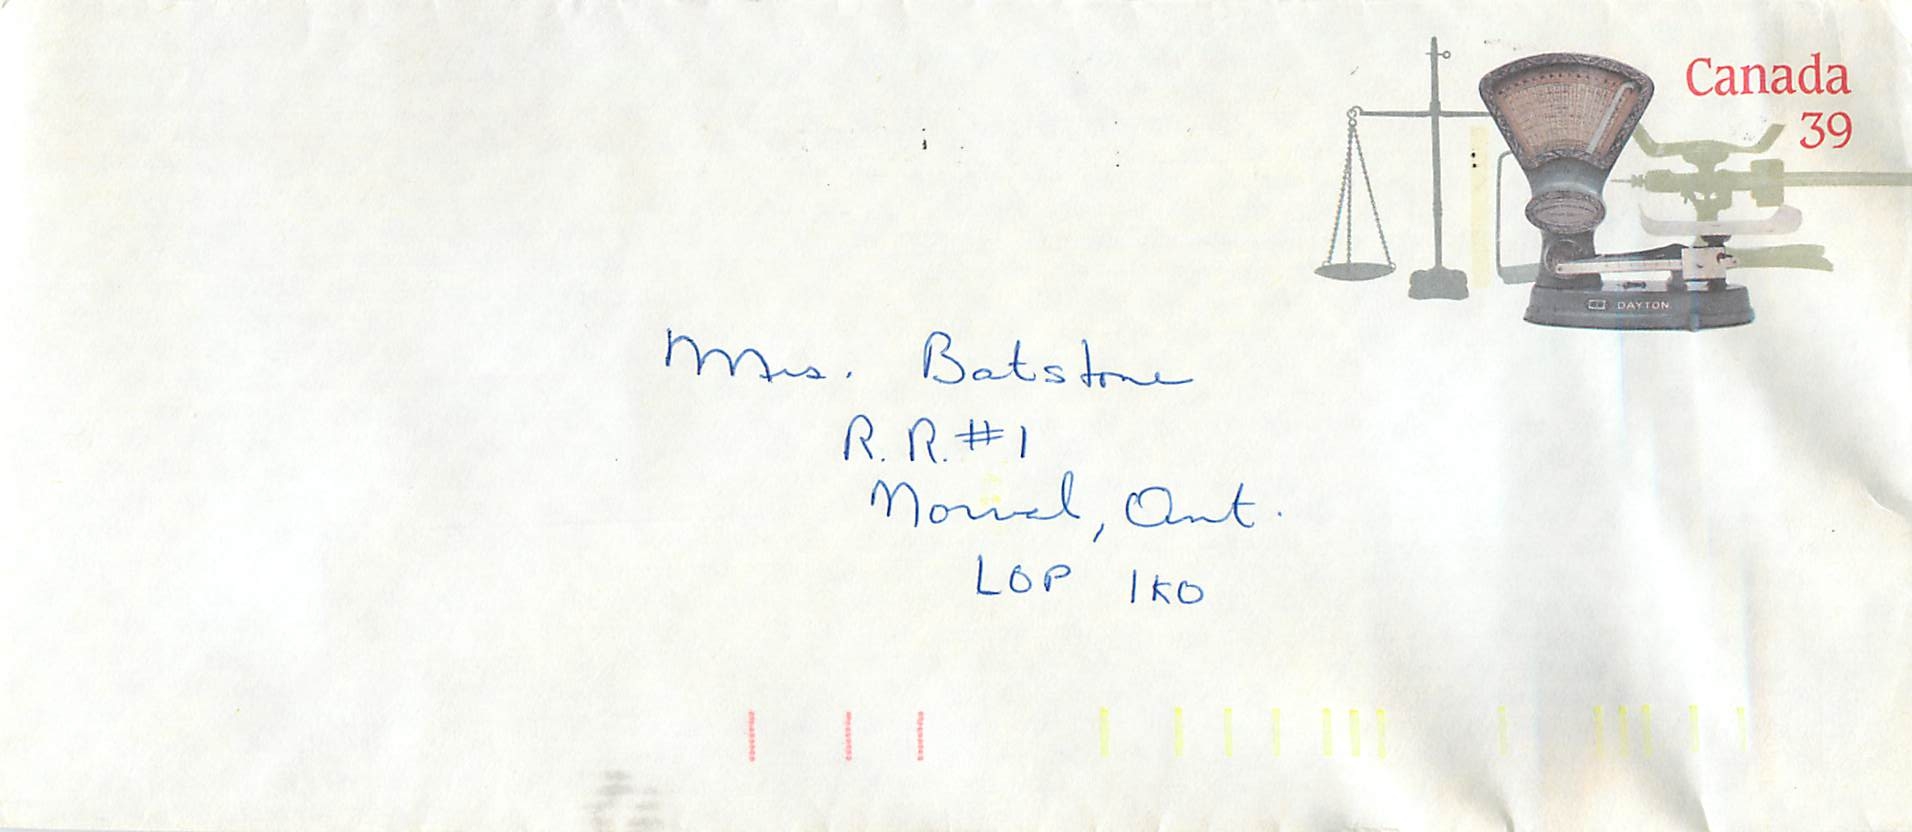 Canada
39
DAYTON
Mrs. Batstone
R.R.#1
Norval, Ont.
L0P 1K0